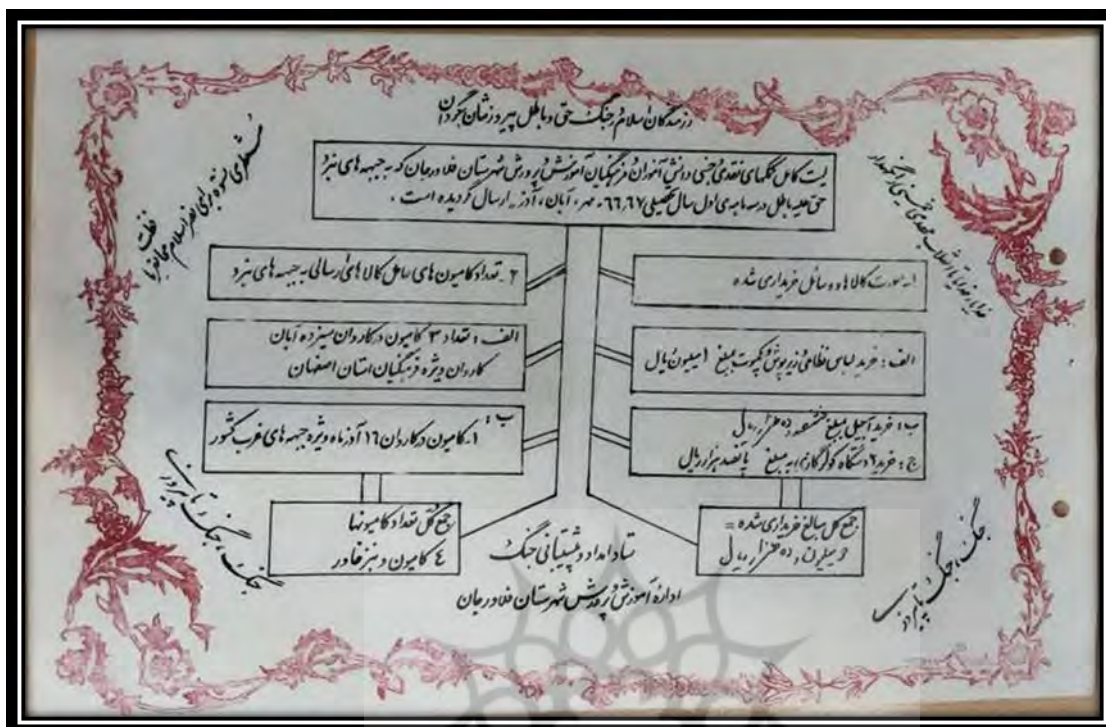 رزمندگان اسلام در جنگ حق و باطل پیروزشان بگردان
لیست کامل کمکهای نقدی و جنسی دانش آموزان و فرهنگیان آموزش و پرورش شهرستان فلاورجان که به جبهه های نبرد
حق علیه باطل در سه ماهه ی اول سال تحصیلی ۶۷ـ۶۶ ـ مهر ، آبان ، آذر ـ ارسال گردیده است .
۱ـ صورت کالاها و وسائل خریداری شده
الف : خرید لباس نظامی و زیرپوش و کمپوت بمبلغ ۱میلیون ریال
ب : خرید آجیل بمبلغ ده هزار ریال
ج : خرید ۲ دستگاه کولر گازی به مبلغ پانصد هزار ریال
جمع کل مبالغ خریداری شده =
میلیون ده هزار ریال
۲ـ تعداد کامیون های حامل کالاهای ارسالی به جبهه های نبرد
الف : تعداد ۳ کامیون در کاروان سیزده آبان
کاروان ویژه فرهنگیان استان اصفهان
ب :
۱ـ کامیون در کاروان ۱۶ آذر ماه ویژه جبهه های غرب کشور
جمع کل تعداد کامیونها
٤ کامیون و بنز خاور
ستاد امداد و پشتیبانی جنگ
اداره آموزش و پرورش شهرستان فلاورجان
خدایا خدایا تا انقلاب مهدی خمینی را نگهدار
جنگ ، جنگ تا پیروزی
جنگ ، جنگ تا پیروزی